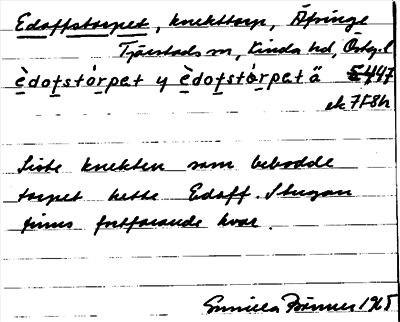 Edoffstorpet, knekttorp, Äfringe
Tjärstads sn, Kinda hd, Östg.l
èdofstórpet y èdofstórpetä 5447
ek 7F8h
Siste knekten som bebodde
torpet hette Edoff. Stugan
finns fortfarande kvar.
Gunilla 1965